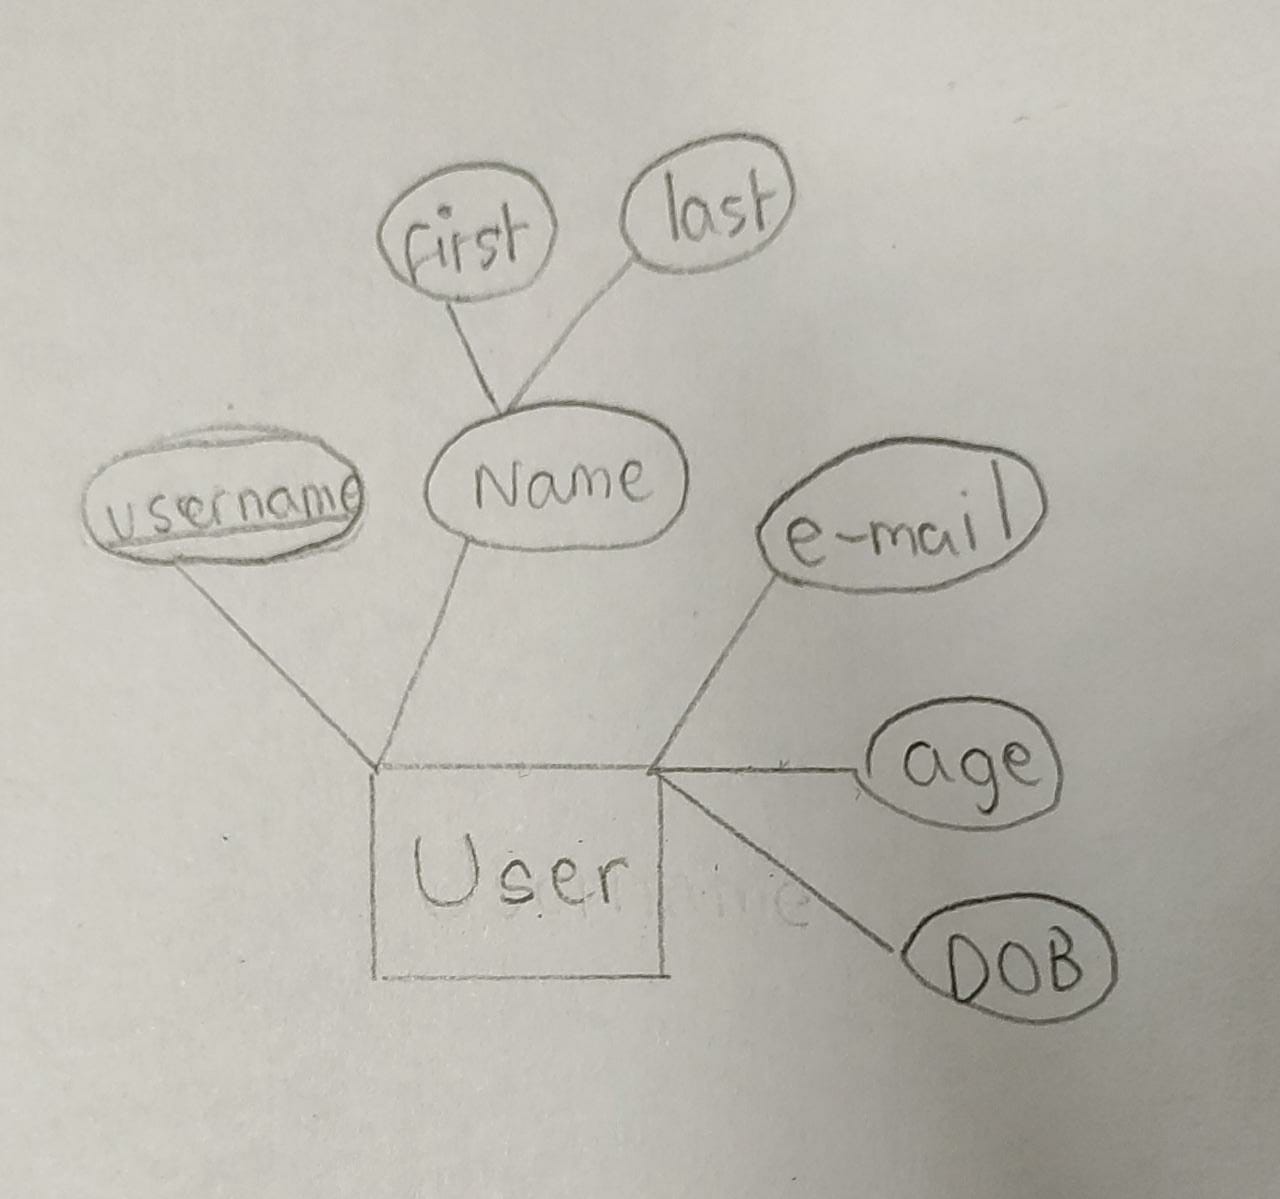 first
last
username
Name
e-mail
age
User
DOB